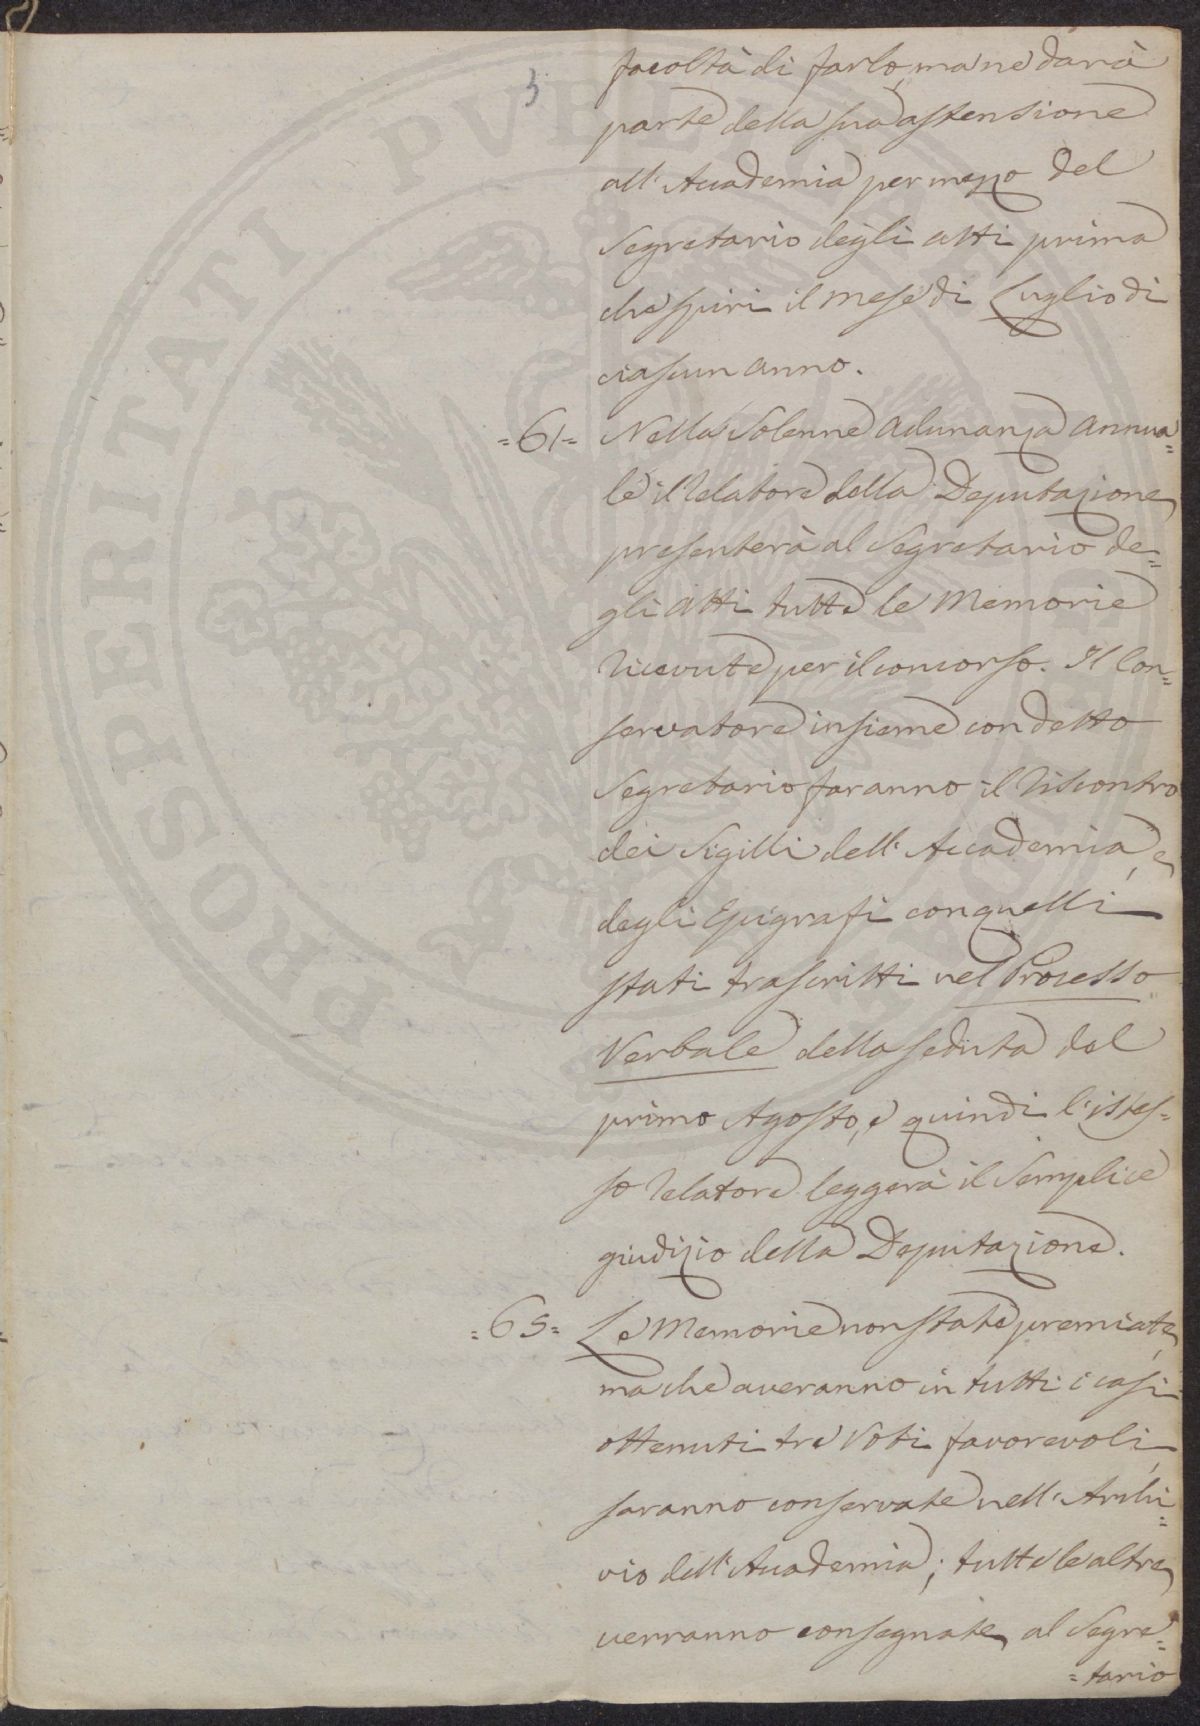 3
facoltà di farlo, ma ne darà
parte della sua astensione
all'Accademia per mezzo del
Segretario degli atti prima
che spiri il mese di Luglio di
ciascun anno.
=61= Nella Solenne adunanza annua=
le il Relatore della Deputazione
presenterà al Segretario de=
gli Atti tutte le Memorie
ricevute per il concorso. Il Con=
servatore insieme con detto
Segretario faranno il riscontro
dei Sigilli dell'Accademia, e
degli Epigrafi con quelli
stati trascritti nel Processo
Verbale della seduta del
primo Agosto, e quindi l'istes=
so Relatore leggerà il Semplice
giudizio della Deputazione.
=65= Le Memorie non state premiate,
ma che averanno in tutti i casi
ottenuti tre Voti favorevoli,
saranno conservate nell'Archi=
vio dell'Accademia; tutte le altre
verranno consegnate al Segre=
=tario
PROSPERITATI PVBLICAE